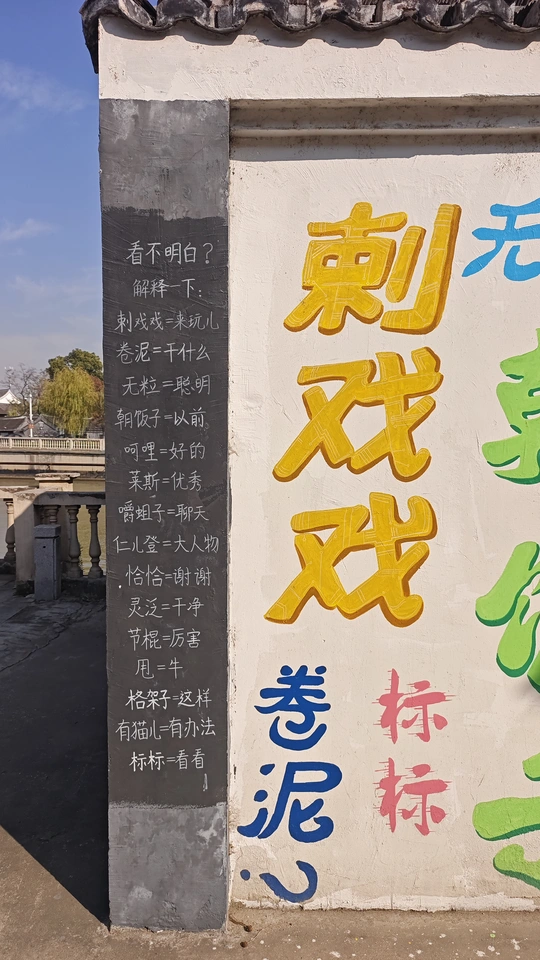 看不明白？
解释一下：
刺戏戏=来玩儿
卷泥=干什么
无粒=聪明
朝饭子=以前
呵哩=好的
莱斯=优秀
嚼蛆子=聊天
仁儿登=大人物
恰恰=谢谢
灵泛=干净
节棍=厉害
甩=牛
格架子=这样
有猫儿=有办法
标标=看看
刺
戏
戏
卷
泥
？
标
标
无
朝
饭
子